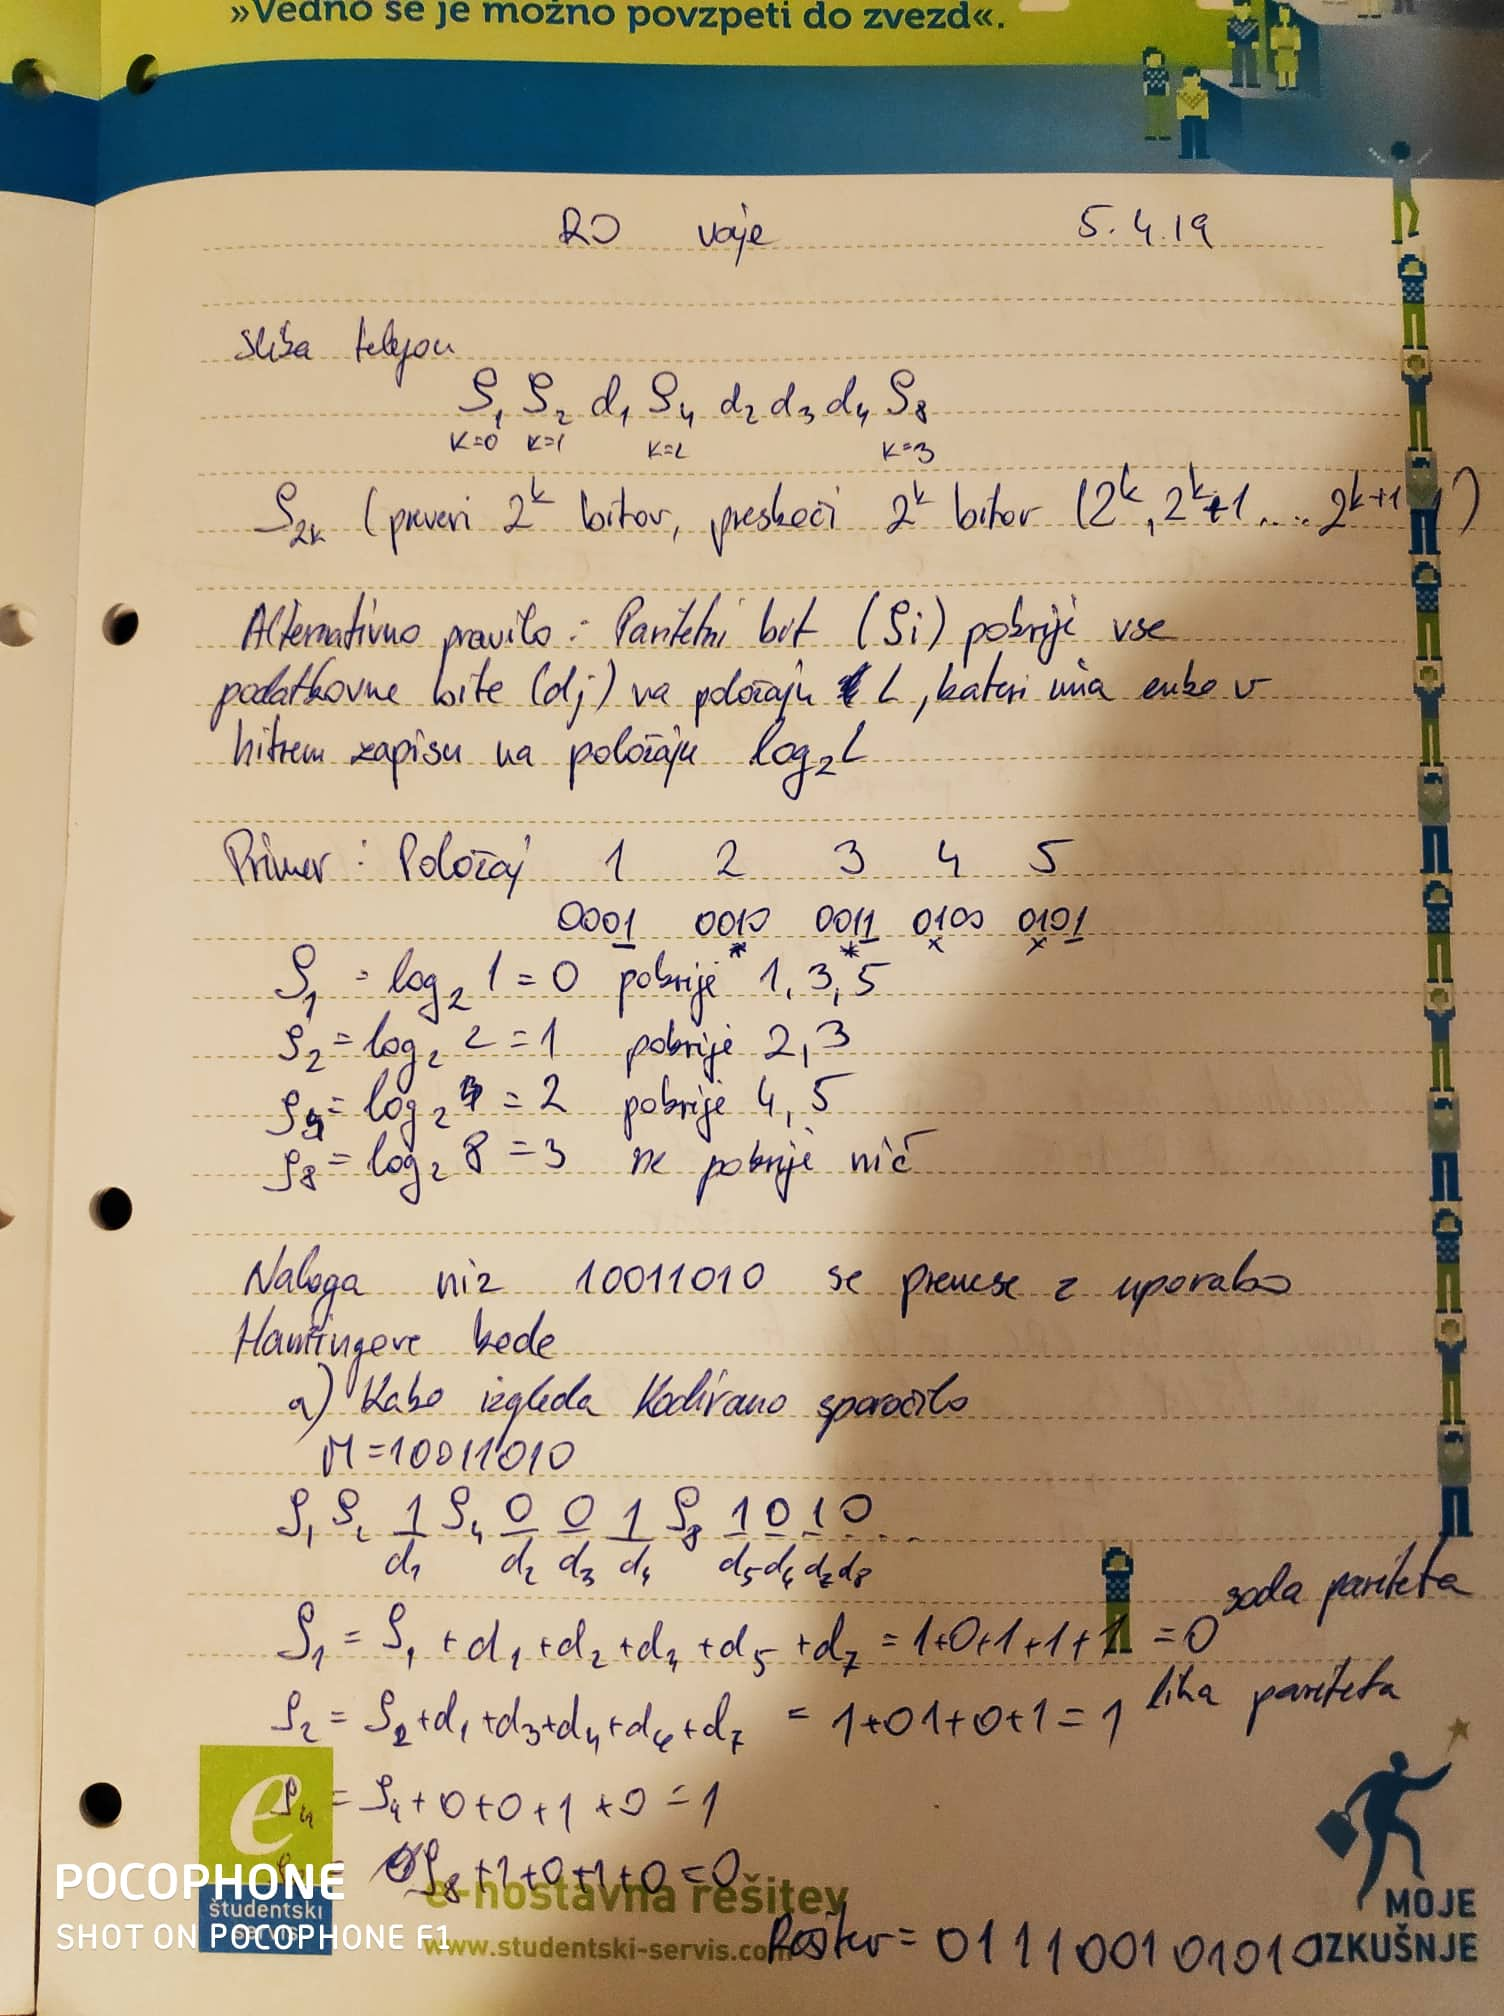 »Vedno se je možno povzpeti do zvezd«.
RO vaje 5.4.19
slika
S₁ S₂ d₁ S₄ d₂ d₃ d₄ S₈
k=0 k=1 k=2 k=3
S₂ₖ (preveri 2^k bitov, preskoči 2^k bitov (2^k, 2^k+1 .... 2^k+1
Alternativno pravilo: Paritetni bit (Si) pokrije vse
podatkovne bite (dj) na položaju L, kateri ima enko v
bitnem zapisu na položaju log₂L
Primer: Položaj 1 2 3 4 5
0001 0010 0011 0100 0101
S₁ = log₂ 1 = 0 pokrije 1, 3, 5
S₂ = log₂ 2 = 1 pokrije 2, 3
S₄ = log₂ 4 = 2 pokrije 4, 5
S₈ = log₂ 8 = 3 ne pokrije nič
Naloga niz 10011010 se prenese z uporabo
Hammingove kode
a) Kako izgleda kodirano sporočilo
M = 10011010
S₁ S₂ 1 S₄ 0 0 1 S₈ 1 0 1 0
d₁ d₂ d₃ d₄ d₅ d₆ d₇ d₈
S₁ = S₁ + d₁ + d₂ + d₄ + d₅ + d₇ = 1+0+1+1+1 = 0 soda pariteta
S₂ = S₂ + d₁ + d₃ + d₄ + d₆ + d₇ = 1+01+0+1 = 1 liha pariteta
S₄ = S₄ + 0 + 0 + 1 + 0 = 1
= S₈ + 1 + 0 + 1 + 0 = 0
e-hostavna rešitev
Rešitev = 011100101010
e
študentski
servis
www.studentski-servis.com
MOJE
IZKUŠNJE
POCOPHONE
SHOT ON POCOPHONE F1